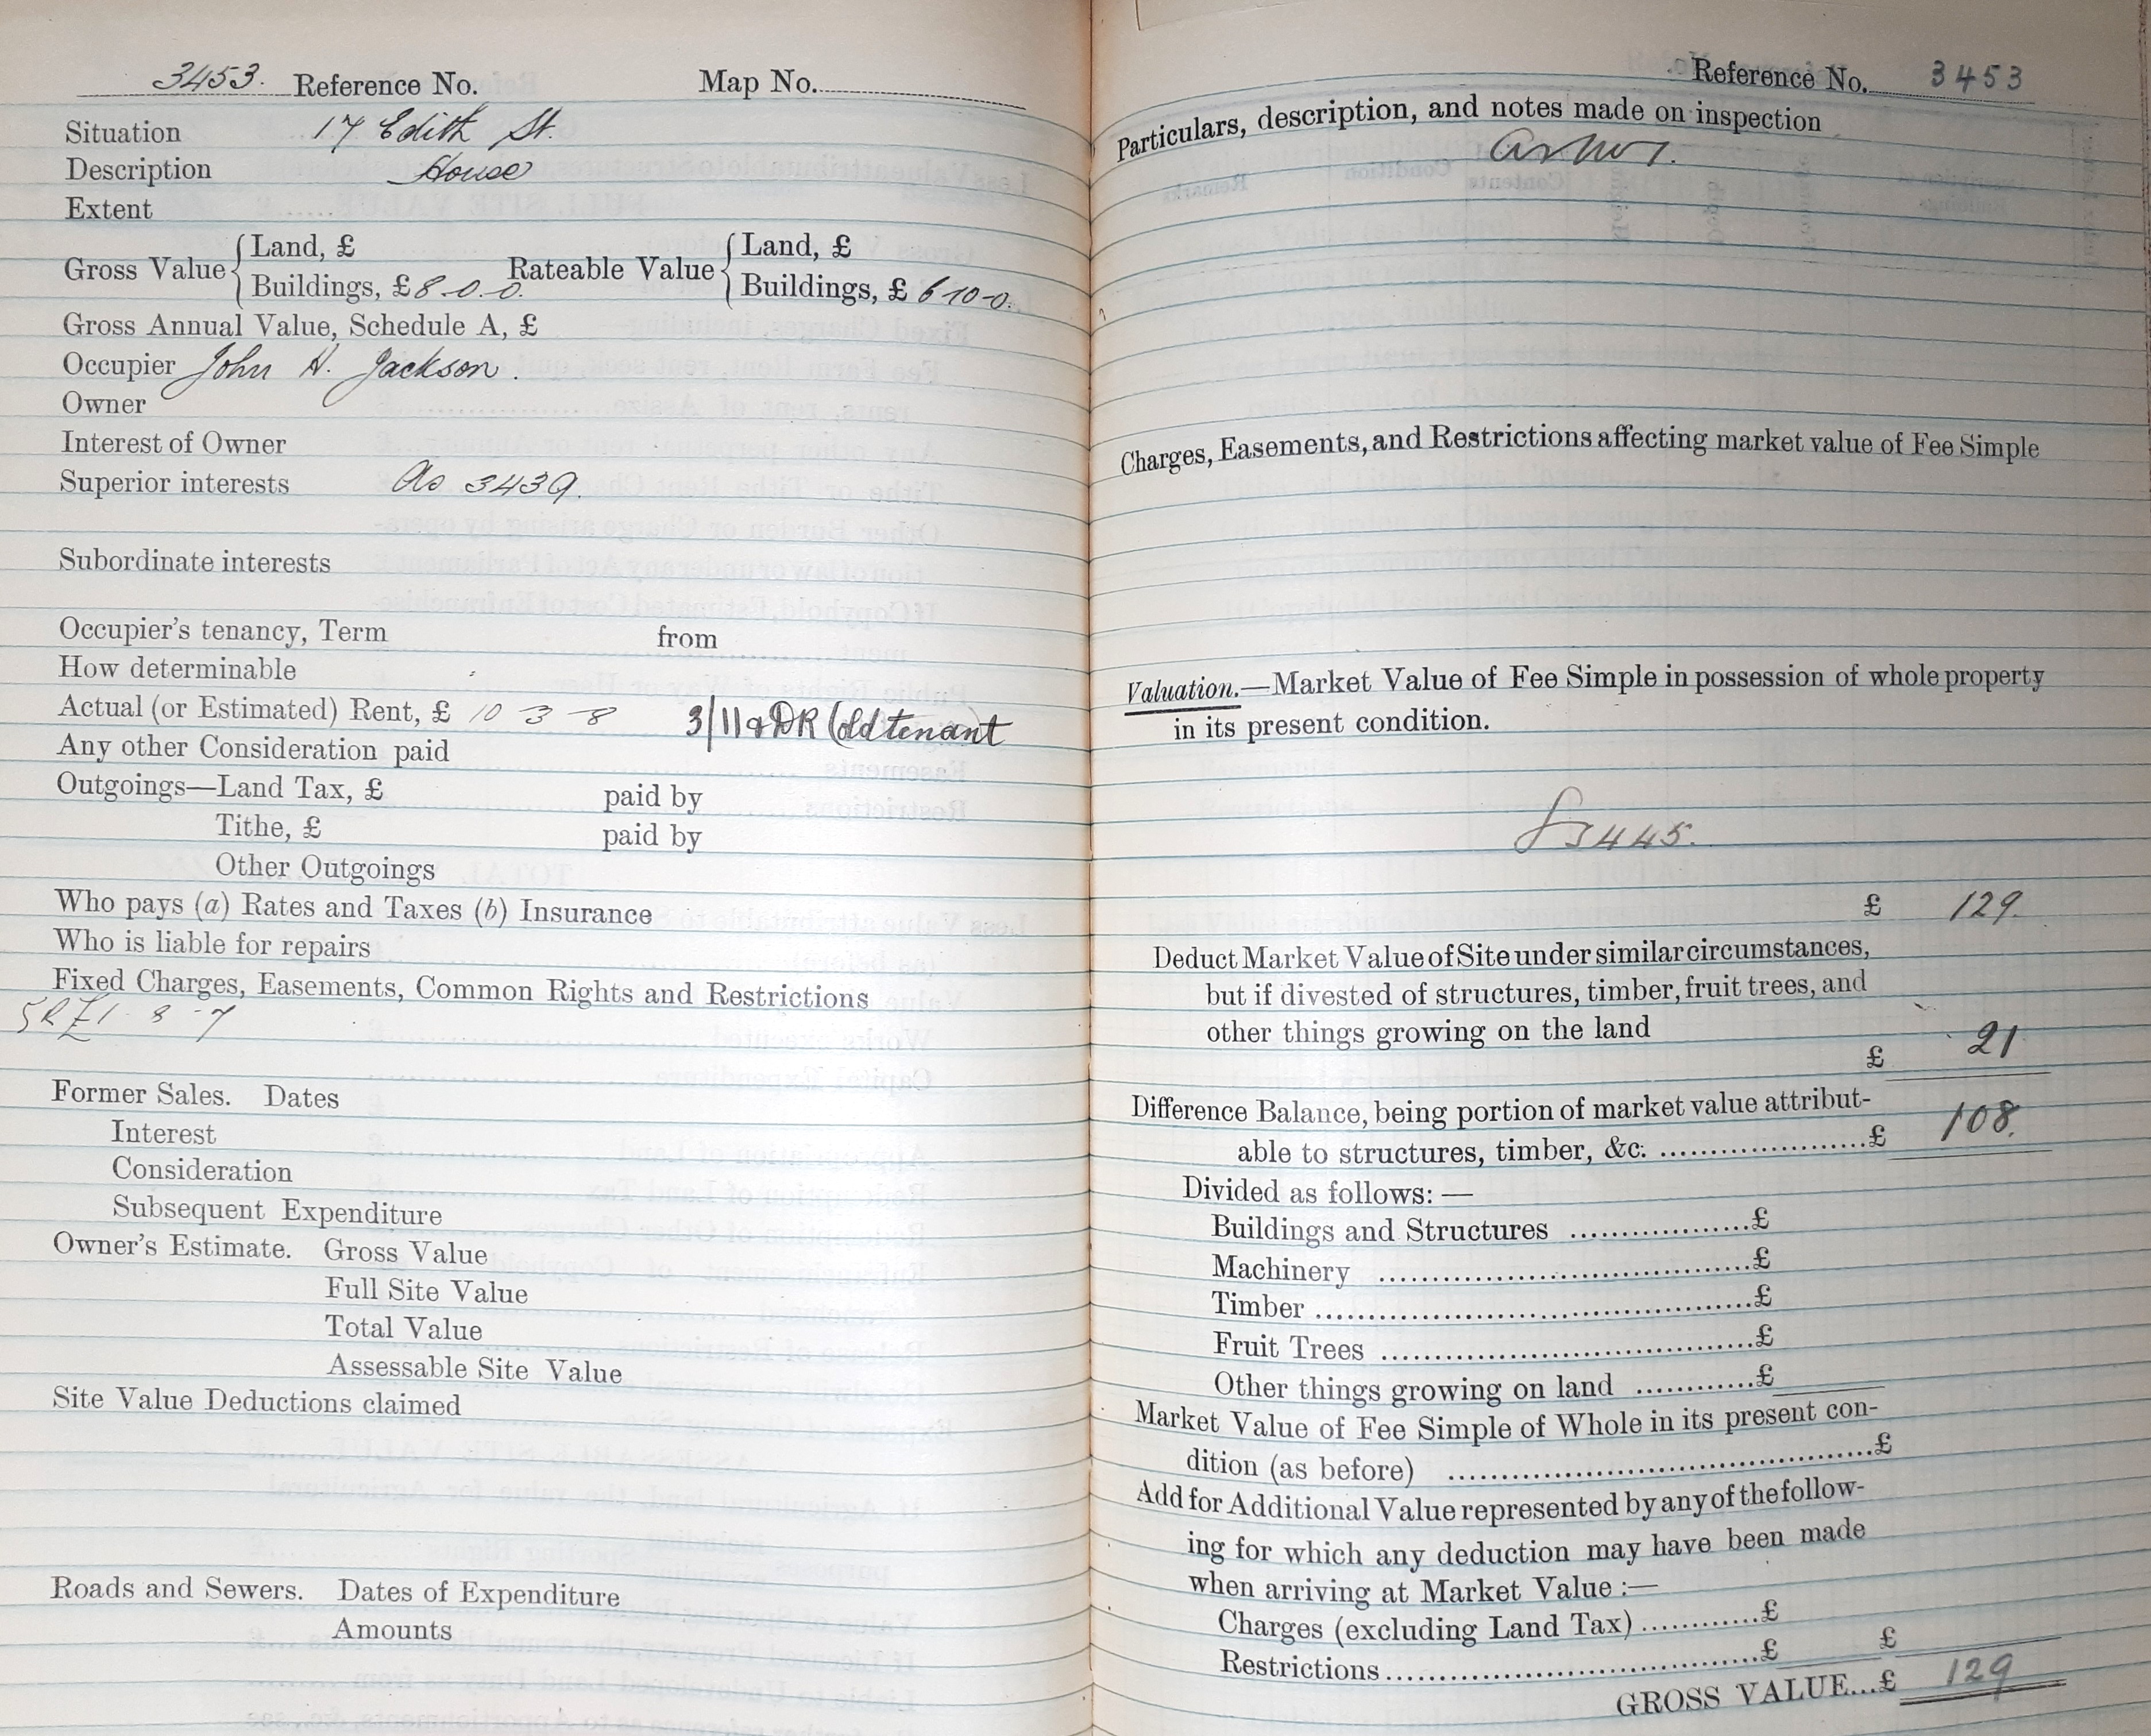 3453. Reference No. Map No.
Situation 17 Edith St.
Description House
Extent
Gross Value { Land, £
Buildings, £ 8-0-0. Rateable Value { Land, £
Buildings, £ 6-10-0.
Gross Annual Value, Schedule A, £
Occupier John H. Jackson.
Owner
Interest of Owner
Superior interests As 3439.
Subordinate interests
Occupier's tenancy, Term from
How determinable
Actual (or Estimated) Rent, £ 10-3-8 3/11 (old tenant
Any other Consideration paid
Outgoings—Land Tax, £ paid by
Tithe, £ paid by
Other Outgoings
Who pays (a) Rates and Taxes (b) Insurance
Who is liable for repairs
Fixed Charges, Easements, Common Rights and Restrictions
£1-8-7
Former Sales. Dates
Interest
Consideration
Subsequent Expenditure
Owner's Estimate. Gross Value
Full Site Value
Total Value
Assessable Site Value
Site Value Deductions claimed
Roads and Sewers. Dates of Expenditure
Amounts
Reference No. 3453
Particulars, description, and notes made on inspection
Charges, Easements, and Restrictions affecting market value of Fee Simple
Valuation.—Market Value of Fee Simple in possession of whole property
in its present condition.
£ 129.
Deduct Market Value of Site under similar circumstances,
but if divested of structures, timber, fruit trees, and
other things growing on the land
£ 21
Difference Balance, being portion of market value attribut-
able to structures, timber, &c. ....................£ 108.
Divided as follows: —
Buildings and Structures ................£
Machinery ................................£
Timber ...................................£
Fruit Trees ..............................£
Other things growing on land ............£
Market Value of Fee Simple of Whole in its present con-
dition (as before) ....................................£
Add for Additional Value represented by any of the follow-
ing for which any deduction may have been made
when arriving at Market Value :—
Charges (excluding Land Tax) ............£
Restrictions..............................£ £
GROSS VALUE...£ 129